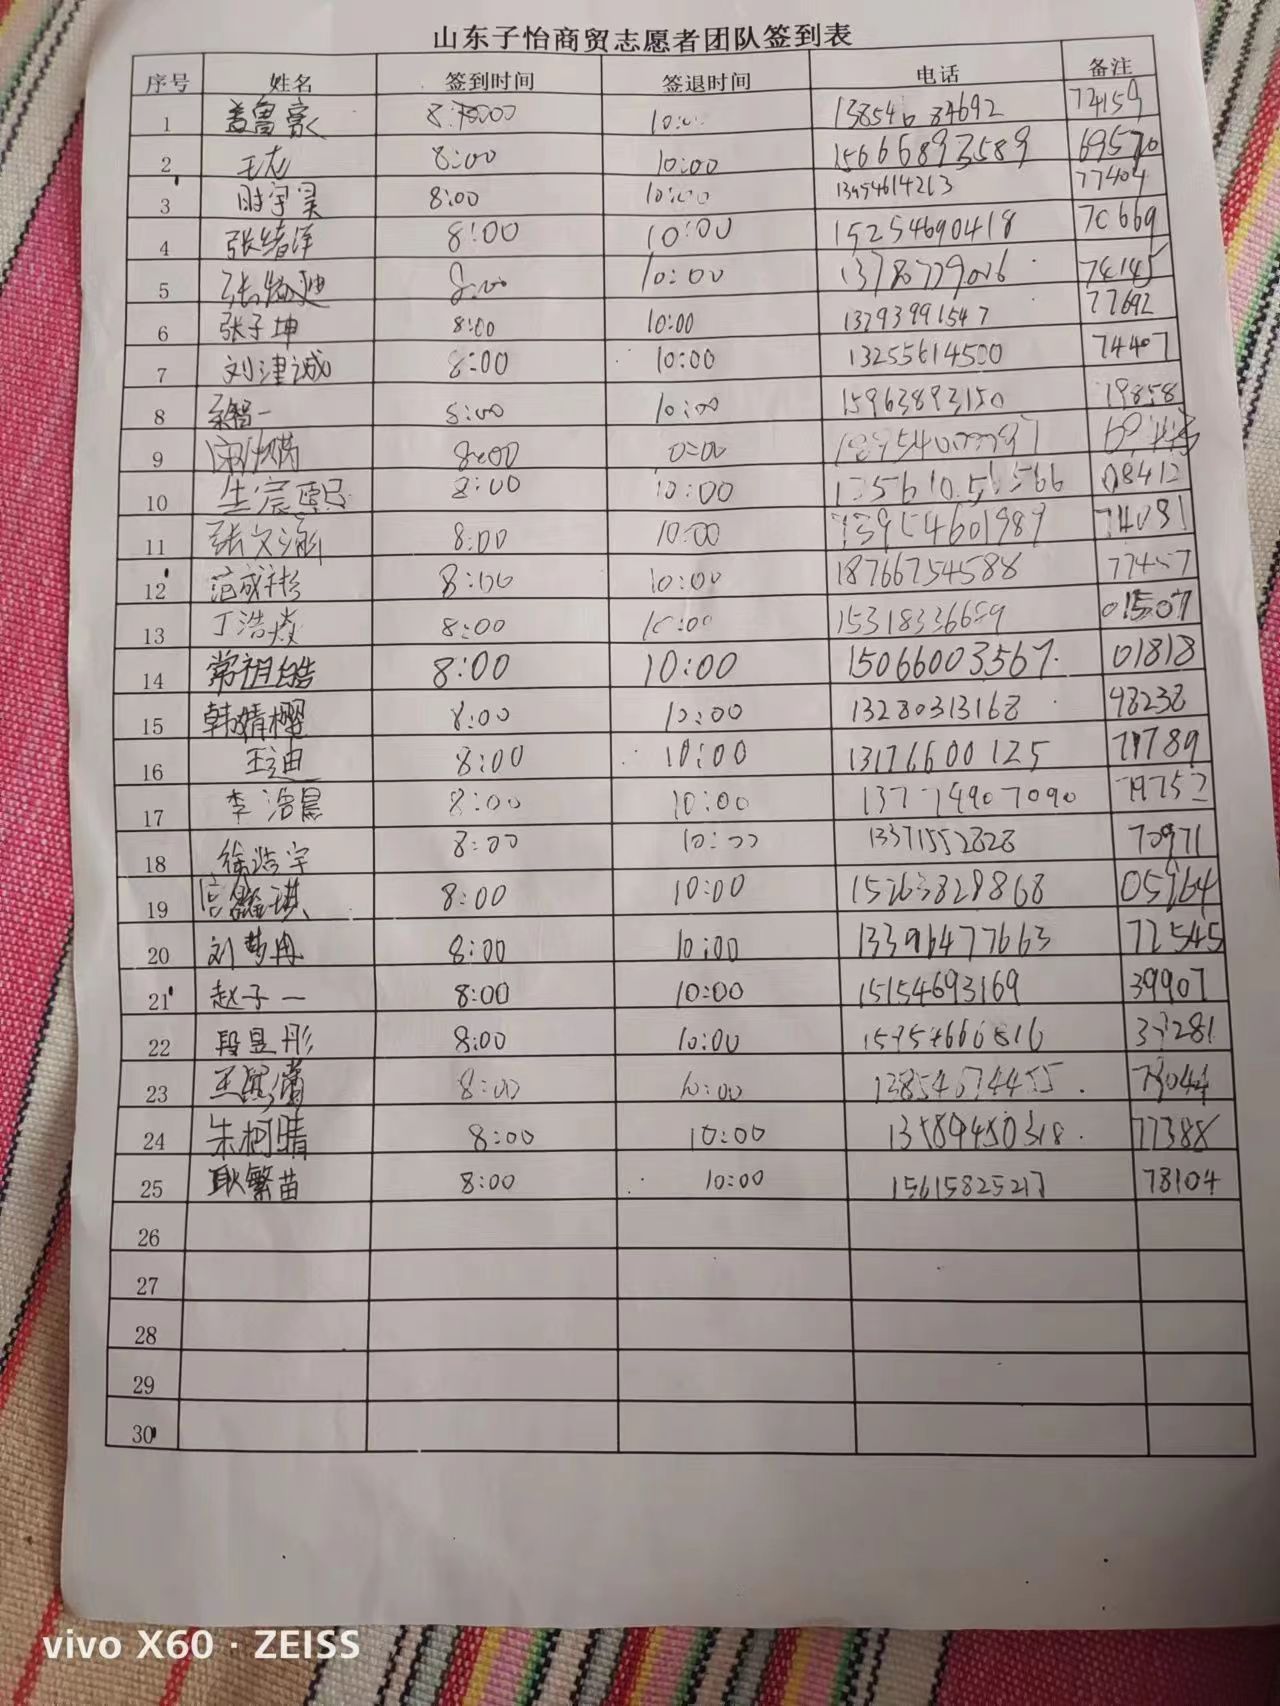 山东子怡商贸志愿者团队签到表
序号 姓名 签到时间 签退时间 电话 备注
1 盖鲁豪 10: 13854684692 72159
2 王龙 8:00 10:00 15666893589 69570
3 时宇昊 8:00 10:00 13954614213 77404
4 张绪洋 8:00 10:00 15254690418 70669
5 8:00 10:00 74145
6 张子坤 8:00 10:00 13293991547 77692
7 刘津诚 8:00 10:00 13255614500 74407
8 8:00 10:00 15963893150 19858
9 8:00
10 8:00 10:00 08412
11 张文 8:00 10:00 13954601989 74081
12 范成彬 8:00 10:00 18766754588 77457
13 丁浩 8:00 10:00 01507
14 常祖皓 8:00 10:00 15066003567 01818
15 韩婧樱 8:00 10:00 13280313168 48238
16 王迪 8:00 10:00 13176600125 71789
17 李浩晨 8:00 10:00
18 徐浩宇 8:00 10:00 13371552828 70971
19 8:00 10:00 15263829868 05964
20 刘梦冉 8:00 10:00 13396477663 72545
21 赵子一 8:00 10:00 15154693169 39907
22 段昱彤 8:00 10:00 15954666816
23 8:00 10:00 13854674455 79044
24 朱柯晴 8:00 10:00 13589450318 77388
25 耿繁苗 8:00 10:00 15615825217 78104
26
27
28
29
30
vivo X60 · ZEISS